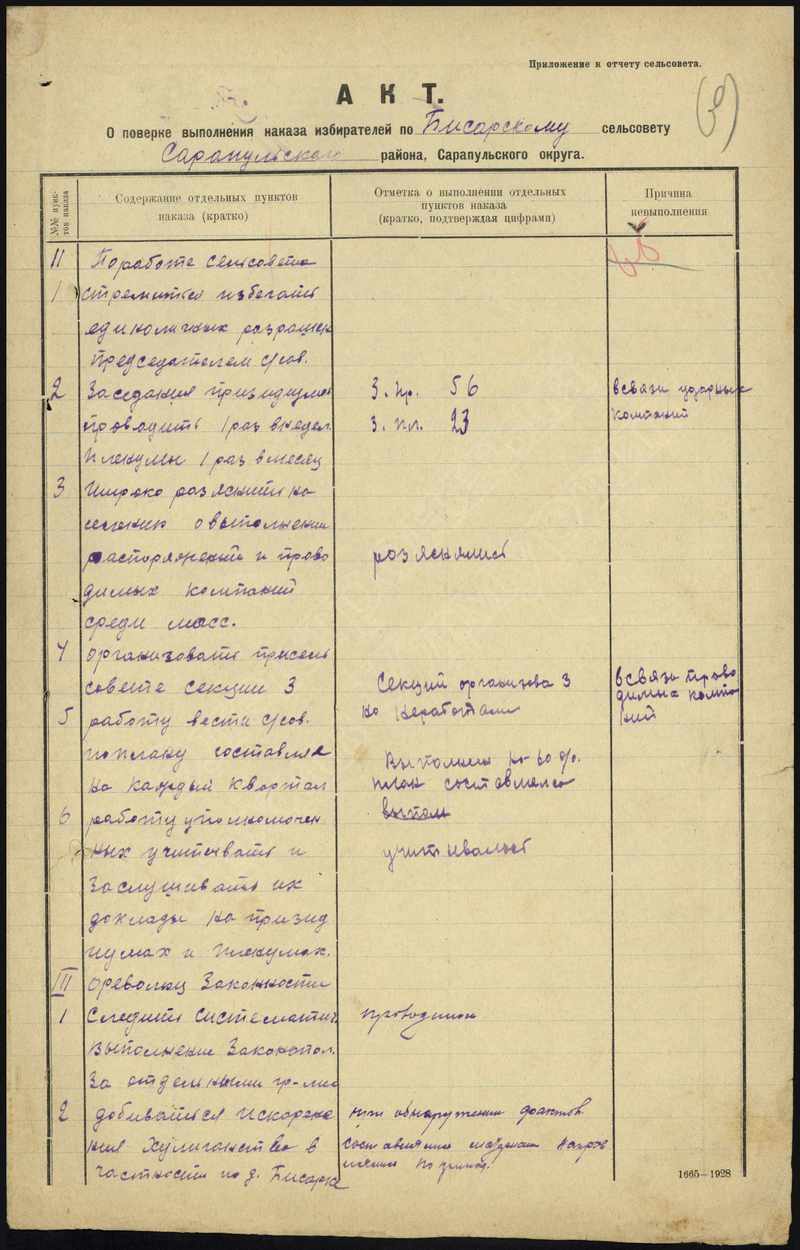 Приложение к отчету сельсовета.
АКТ.
О поверке выполнения наказа избирателей по Бисарскому сельсовету
Сарапульского района, Сарапульского округа.
№№ пунктов наказа
Содержание отдельных пунктов
наказа (кратко)
Отметка о выполнении отдельных
пунктов наказа
(кратко, подтверждая цифрами)
Причина
невыполнения
II По работе сельсовета
1 стремится избегать
единоличных разрешен
председателем с/сов.
2 Заседания призидиума З. пр. 56 в связи ударных
проводить 1 раз в недел. З. пл. 23 компаний
Пленумы 1 раз в месяц
3 Широко разяснить на
селению о выполнении
распоряжений и прово разяснялись
димых компаний
среди масс.
4 организовать при сель
совете секции 3 Секций организова 3 в связи прово
но неработали димых компа
ний
5 работу вести с/сов.
по плану составляя Выполнен на 60%.
на каждый квартал план составлялся
6 работу уполномочен выпол
ных учитывать и учитывалась
Заслушивать их
доклады на призид
иумах и пленумах.
III о револющ Законности
1 Следить систематич. проводится
выполнение Законопол.
За отдельными гр-ми
2 добиваться искорене при обнаружении фактов
ния хулиганства в
частности по д. Бисарка
1665—1928